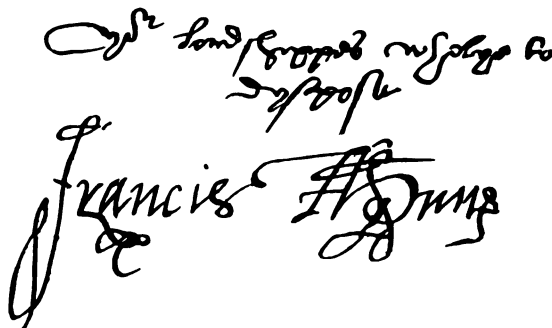 Yor lordshippes wholye to
dyspose
Francis Thynne